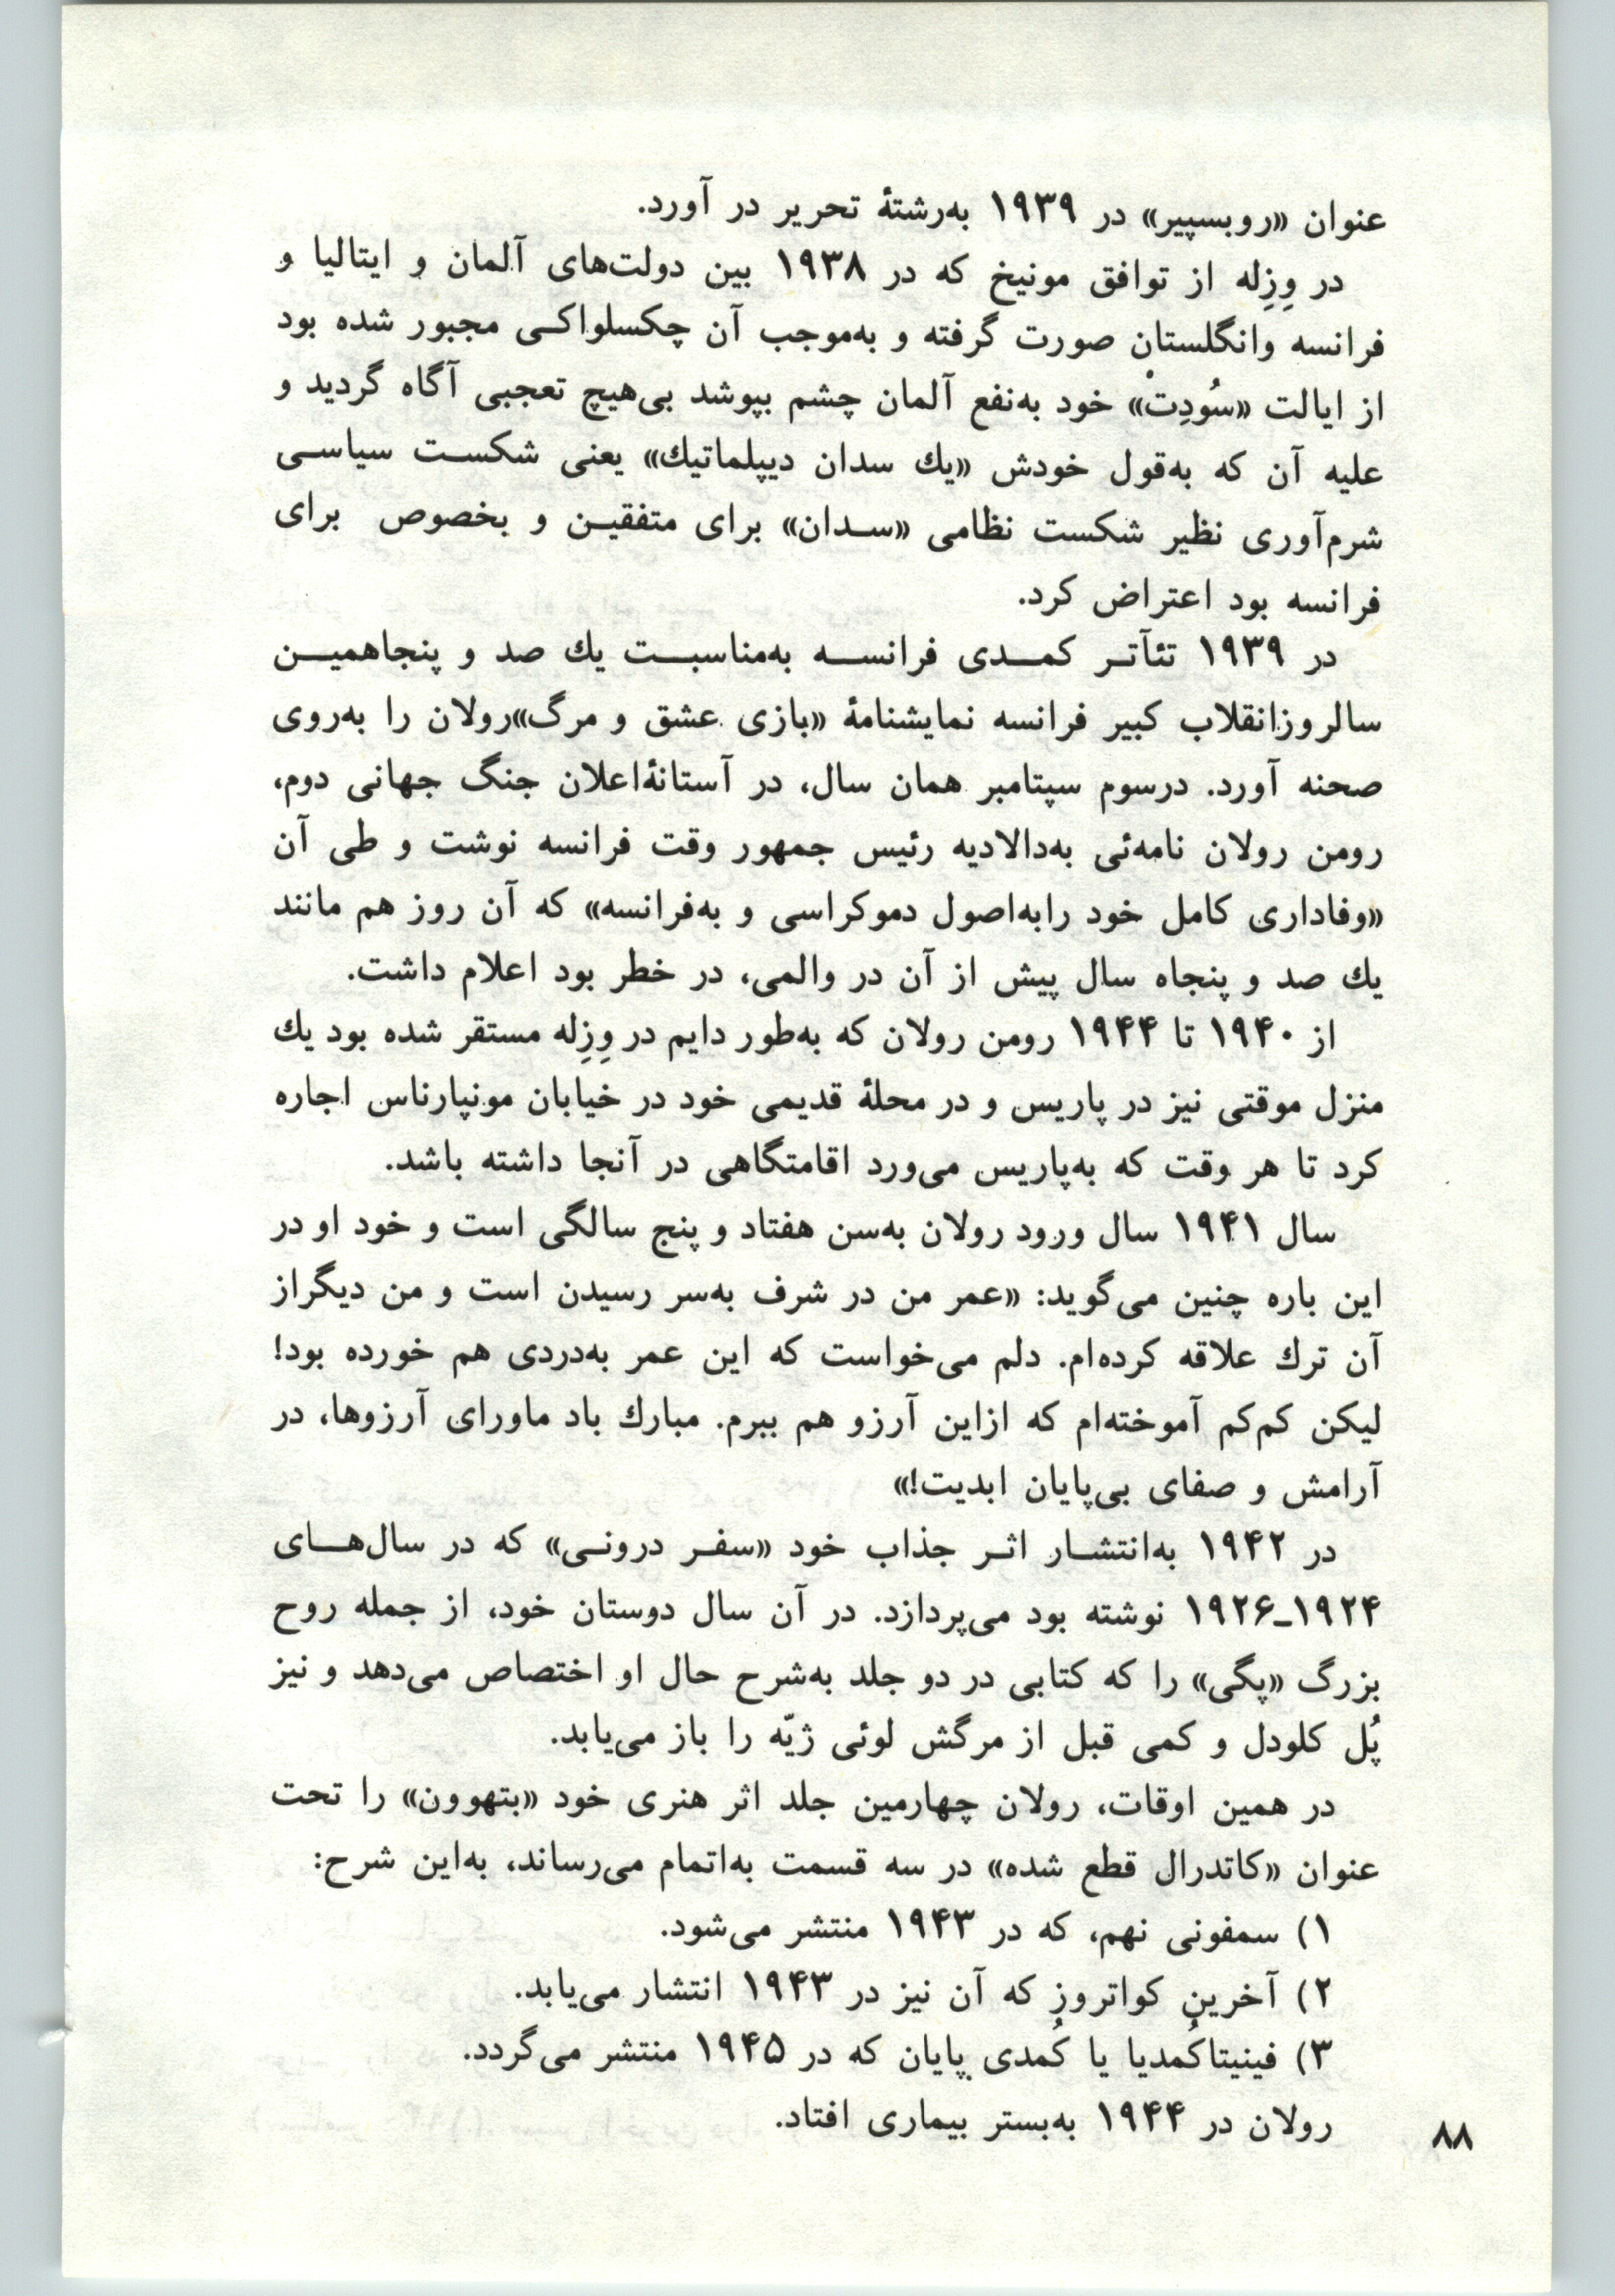 عنوان «روبسپیر» در ۱۹۳۹ به‌رشتهٔ تحریر در آورد.
در وِزِله از توافق مونیخ که در ۱۹۳۸ بین دولت‌های آلمان و ایتالیا و
فرانسه وانگلستان صورت گرفته و به‌موجب آن چکسلواکی مجبور شده بود
از ایالت «سُودِتْ» خود به‌نفع آلمان چشم بپوشد بی‌هیچ تعجبی آگاه گردید و
علیه آن که به‌قول خودش «یك سدان دیپلماتیك» یعنی شکست سیاسی
شرم‌آوری نظیر شکست نظامی «سدان» برای متفقین و بخصوص برای
فرانسه بود اعتراض کرد.
در ۱۹۳۹ تئآتر کمدی فرانسه به‌مناسبت یك صد و پنجاهمین
سالروزانقلاب کبیر فرانسه نمایشنامهٔ «بازی عشق و مرگ»رولان را به‌روی
صحنه آورد. درسوم سپتامبر همان سال، در آستانهٔاعلان جنگ جهانی دوم،
رومن رولان نامه‌ئی به‌دالادیه رئیس جمهور وقت فرانسه نوشت و طی آن
«وفاداری کامل خود رابه‌اصول دموکراسی و به‌فرانسه» که آن روز هم مانند
یك صد و پنجاه سال پیش از آن در والمی، در خطر بود اعلام داشت.
از ۱۹۴۰ تا ۱۹۴۴ رومن رولان که به‌طور دایم در وِزِله مستقر شده بود یك
منزل موقتی نیز در پاریس و در محلهٔ قدیمی خود در خیابان مونپارناس اجاره
کرد تا هر وقت که به‌پاریس می‌ورد اقامتگاهی در آنجا داشته باشد.
سال ۱۹۴۱ سال ورود رولان به‌سن هفتاد و پنج سالگی است و خود او در
این باره چنین می‌گوید: «عمر من در شرف به‌سر رسیدن است و من دیگراز
آن ترك علاقه کرده‌ام. دلم می‌خواست که این عمر به‌دردی هم خورده بود!
لیکن کم‌کم آموخته‌ام که ازاین آرزو هم ببرم. مبارك باد ماورای آرزوها، در
آرامش و صفای بی‌پایان ابدیت!»
در ۱۹۴۲ به‌انتشار اثر جذاب خود «سفر درونی» که در سال‌های
۱۹۲۴ـ۱۹۲۶ نوشته بود می‌پردازد. در آن سال دوستان خود، از جمله روح
بزرگ «پگی» را که کتابی در دو جلد به‌شرح حال او اختصاص می‌دهد و نیز
پُل کلودل و کمی قبل از مرگش لوئی ژیّه را باز می‌یابد.
در همین اوقات، رولان چهارمین جلد اثر هنری خود «بتهوون» را تحت
عنوان «کاتدرال قطع شده» در سه قسمت به‌اتمام می‌رساند، به‌این شرح:
۱) سمفونی نهم، که در ۱۹۴۳ منتشر می‌شود.
۲) آخرین کواتروز که آن نیز در ۱۹۴۳ انتشار می‌یابد.
۳) فینیتاکُمدیا یا کُمدی پایان که در ۱۹۴۵ منتشر می‌گردد.
رولان در ۱۹۴۴ به‌بستر بیماری افتاد.
۸۸